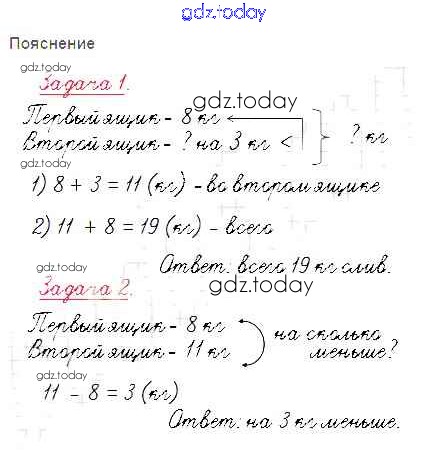 gdz.today
Пояснение
gdz.today
Задача 1.
gdz.today
Первый ящик - 8 кг
Второй ящик - ? на 3 кг <
? кг
gdz.today
1) 8 + 3 = 11 (кг) - во втором ящике
2) 11 + 8 = 19 (кг) - всего
gdz.today
Ответ: всего 19 кг слив.
Задача 2.
gdz.today
Первый ящик - 8 кг
Второй ящик - 11 кг
на сколько
меньше?
gdz.today
11 - 8 = 3 (кг)
Ответ: на 3 кг меньше.